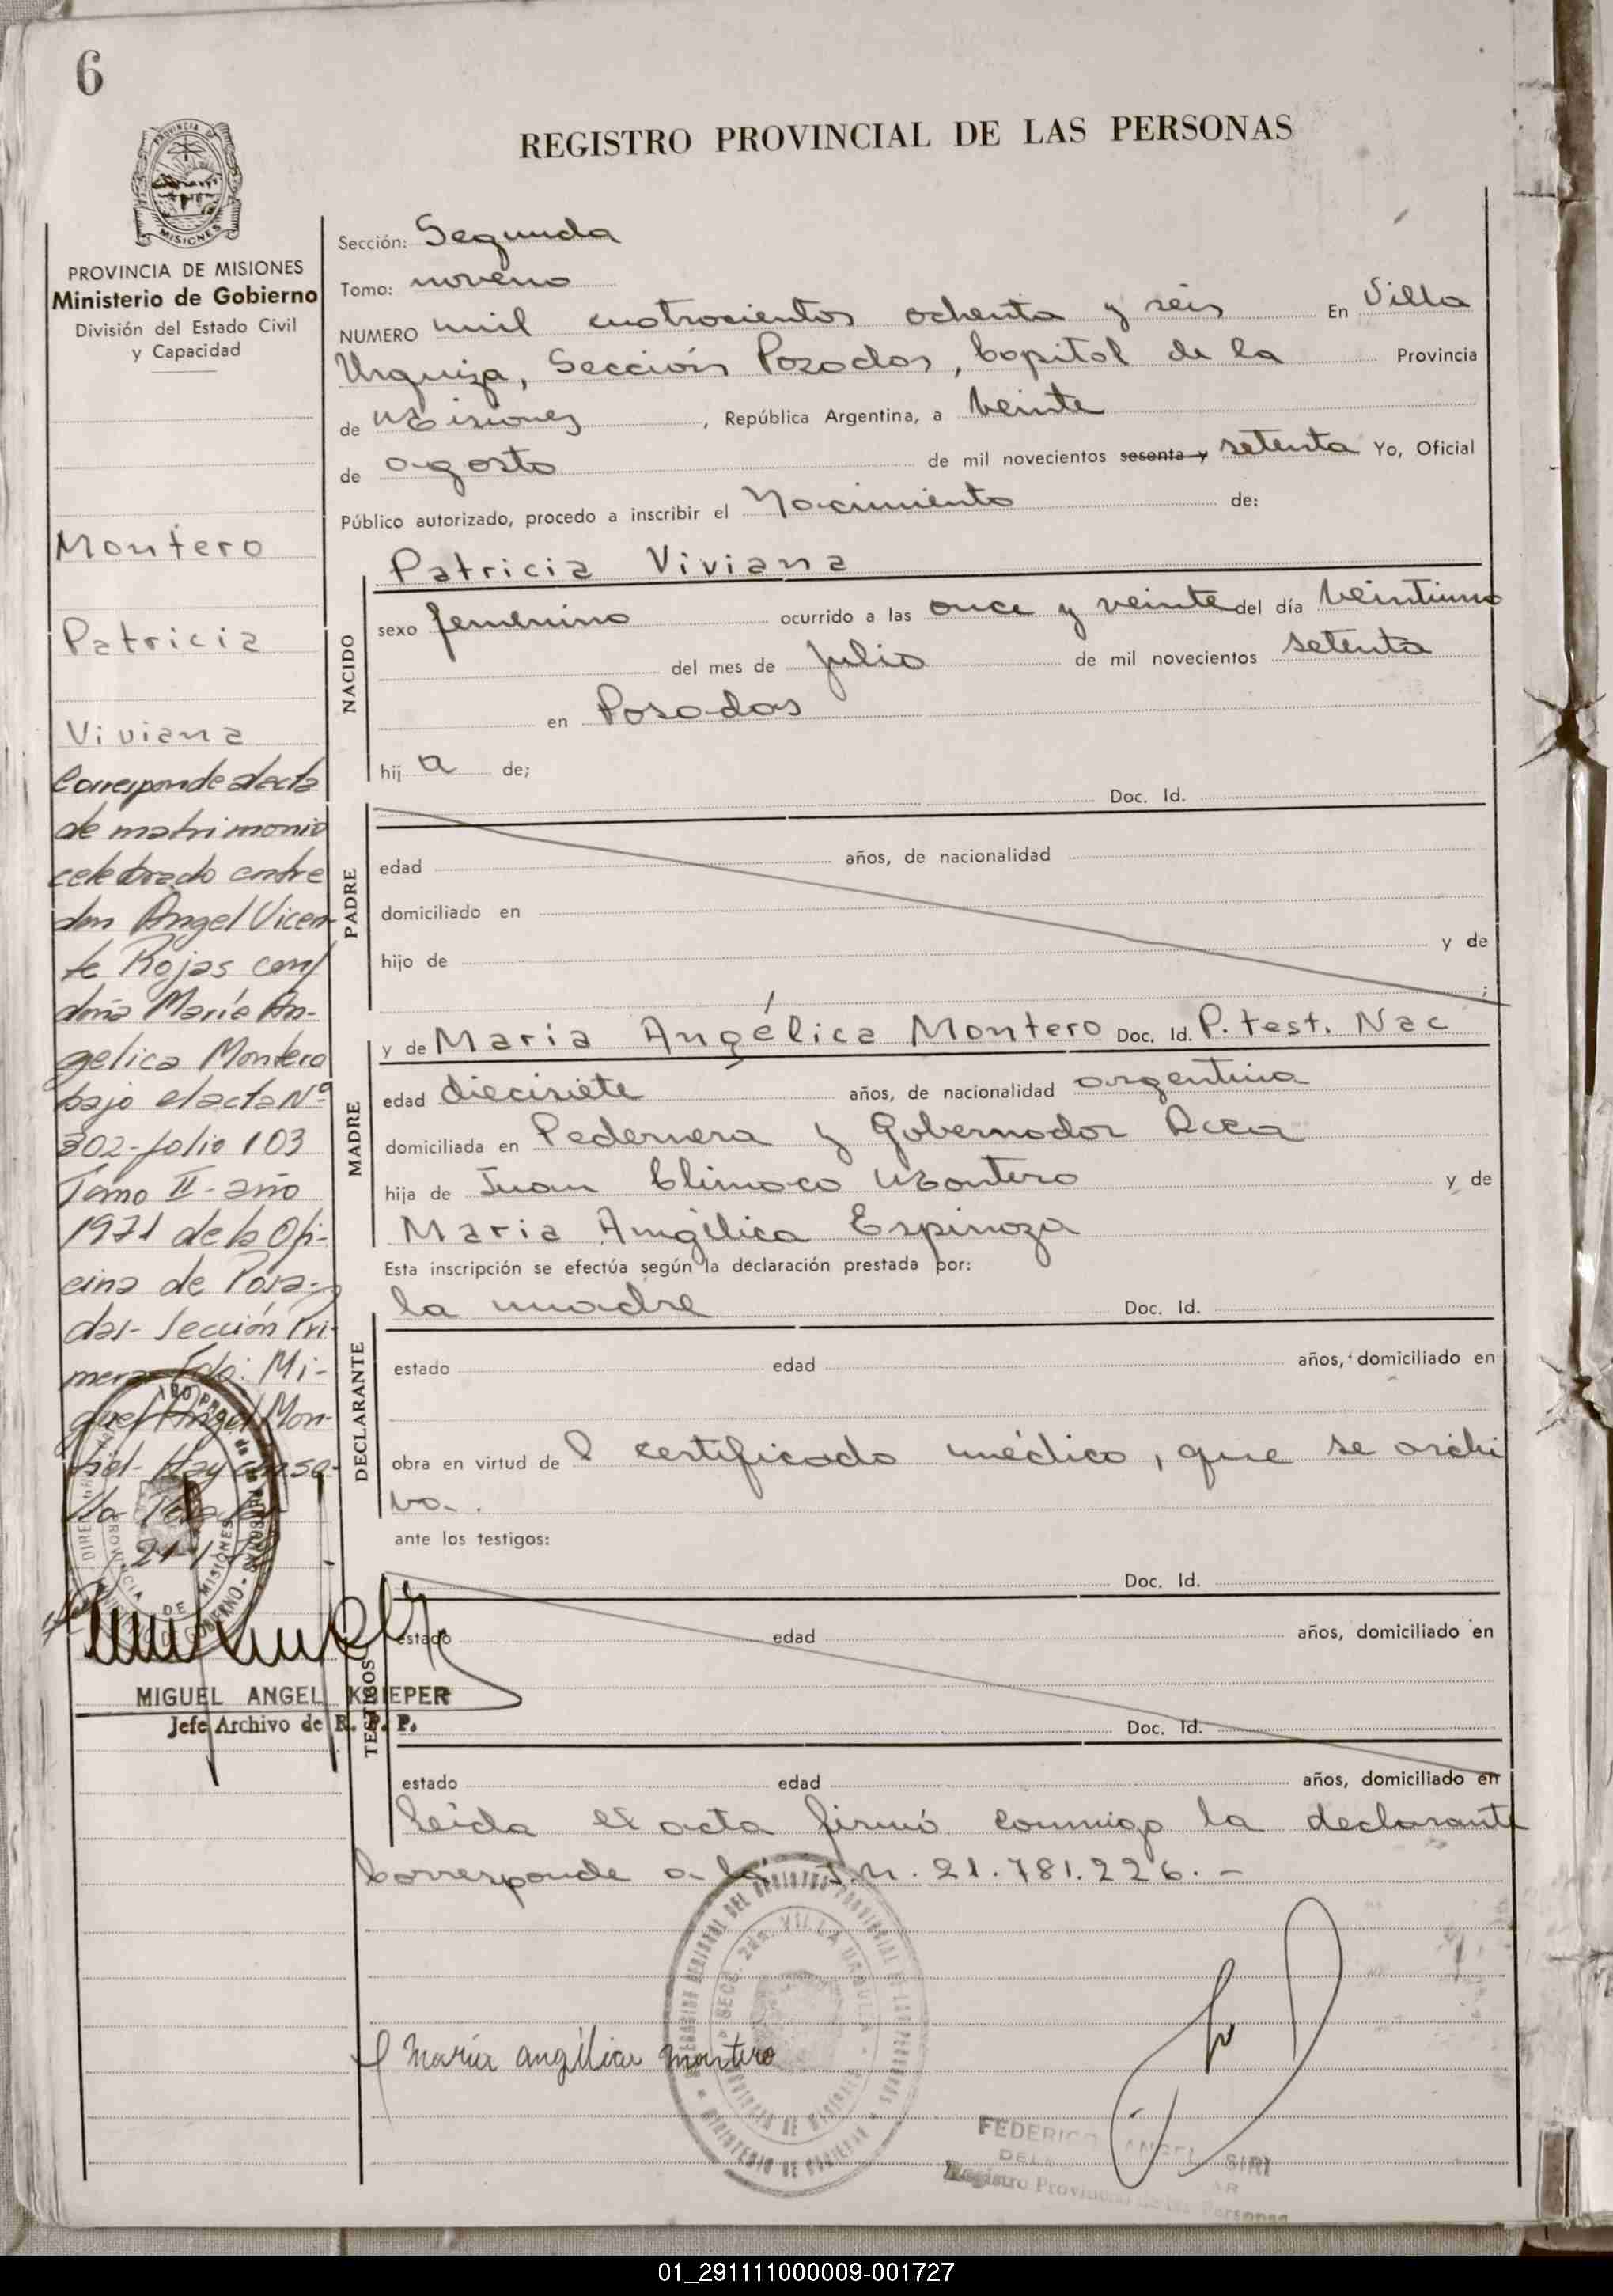 6
REGISTRO PROVINCIAL DE LAS PERSONAS
PROVINCIA DE MISIONES
Ministerio de Gobierno
División del Estado Civil
y Capacidad
Montero
Patricia
Viviana
Corresponde al acta
de matrimonio
celebrado entre
don Angel Vicen-
te Rojas con
doña María An-
gelica Montero
bajo el acta Nº
302-folio 103
Tomo II-año
1971 de la Ofi-
cina de Posa-
das-Sección Pri-
mera Fdo: Mi-
guel Angel Mon-
tiel-Hay un se-
MIGUEL ANGEL KNIEPER
Jefe Archivo de R. P. P.
Sección: Segunda
Tomo: noveno
NUMERO mil cuatrocientos ochenta y seis En Villa
Urquiza, Sección Posadas, Capital de la Provincia
de Misiones, República Argentina, a veinte
de agosto de mil novecientos sesenta y setenta Yo, Oficial
Público autorizado, procedo a inscribir el Nacimiento de:
NACIDO
Patricia Viviana
sexo femenino ocurrido a las once y veinte del día veintiuno
del mes de julio de mil novecientos setenta
en Posadas
hij a de;
PADRE
Doc. Id.
edad años, de nacionalidad
domiciliado en
hijo de y de
;
MADRE
y de Maria Angélica Montero Doc. Id. P. test. Nac
edad diecisiete años, de nacionalidad argentina
domiciliada en Pedernera y Gobernador Roca
hija de Juan Climaco Montero y de
Maria Angélica Espinoza
Esta inscripción se efectúa según la declaración prestada por:
DECLARANTE
la madre Doc. Id.
estado edad años, domiciliado en
obra en virtud de l certificado médico, que se archi
va-.
ante los testigos:
TESTIGOS
Doc. Id.
estado edad años, domiciliado en
Doc. Id.
estado edad años, domiciliado en
Leída el acta firmó conmigo la declarante
Corresponde a la I.N. 21.781.226.-
SECC. 2da. VILLA URQUIZA
PROVINCIA DE MISIONES
MINISTERIO DE GOBIERNO
María angélica montero
FEDERICO ANGEL SIRI
Registro Provincial de las Personas
01_291111000009-001727